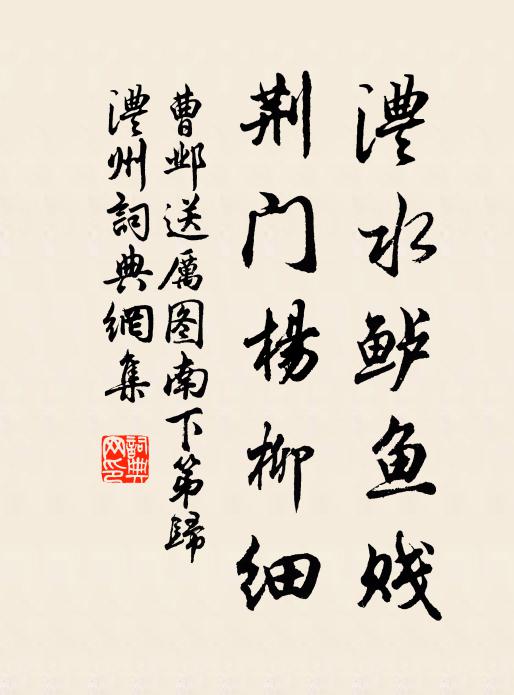 澧水鲈鱼贱
荆门楊柳细
曹邺送厲图南下第歸
澧州詞典網集
詞典网印